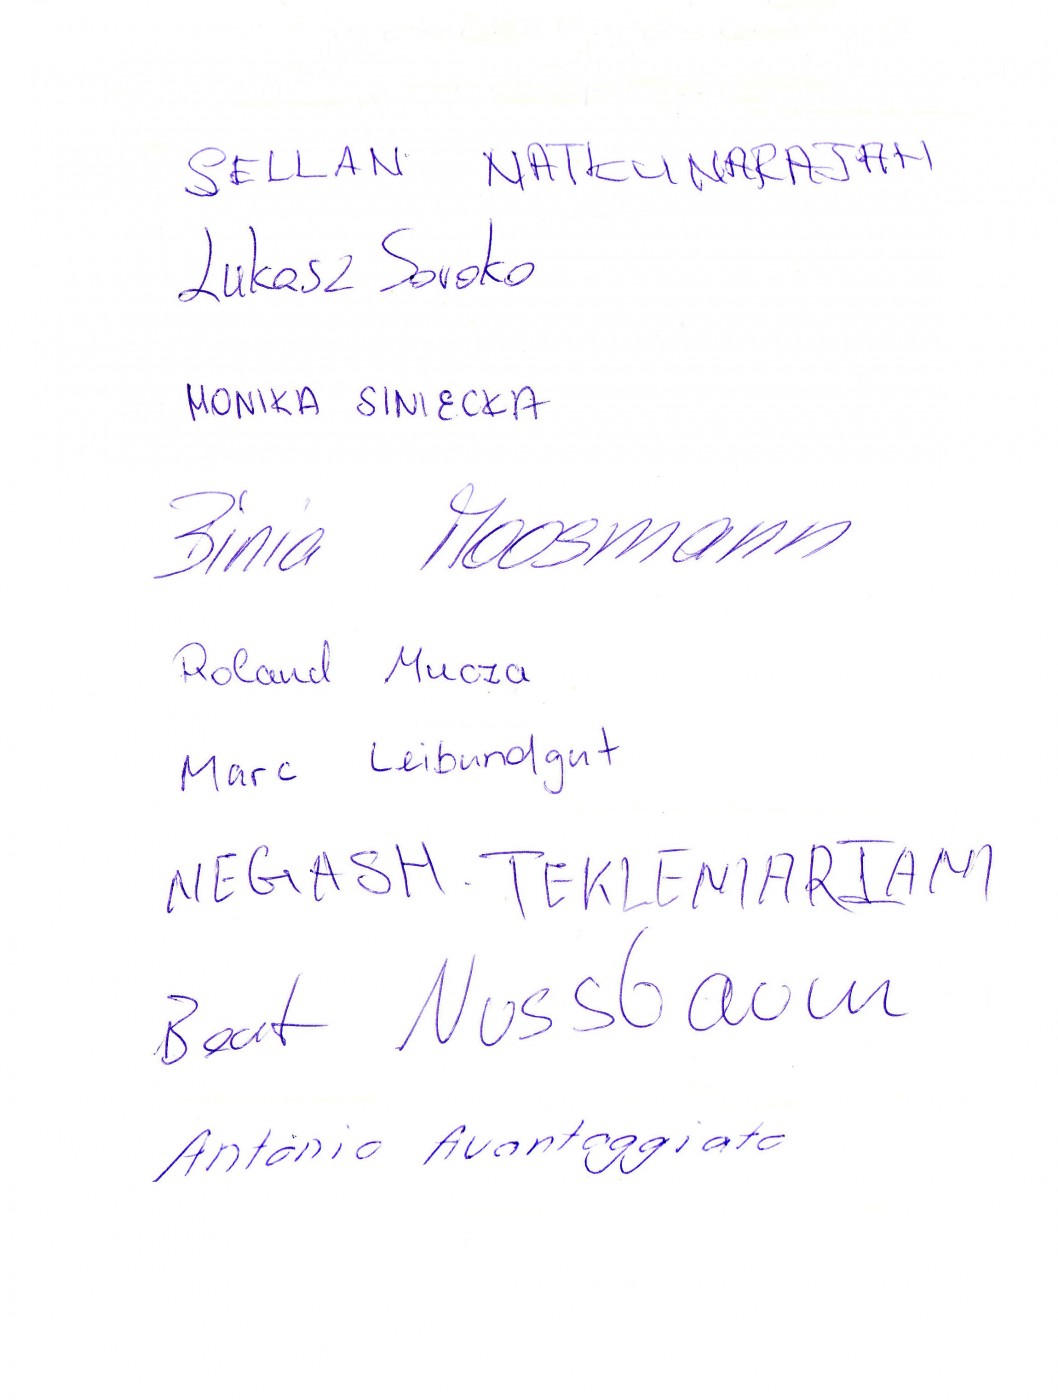 SELLAN NATKUNARAJAH
Lukasz Soroko
MONIKA SINIECKA
Binia Moosmann
Roland Mucza
Marc Leibundgut
NEGASH. TEKLEMARIAM
Beat Nussbaum
Antonio Avantaggiato